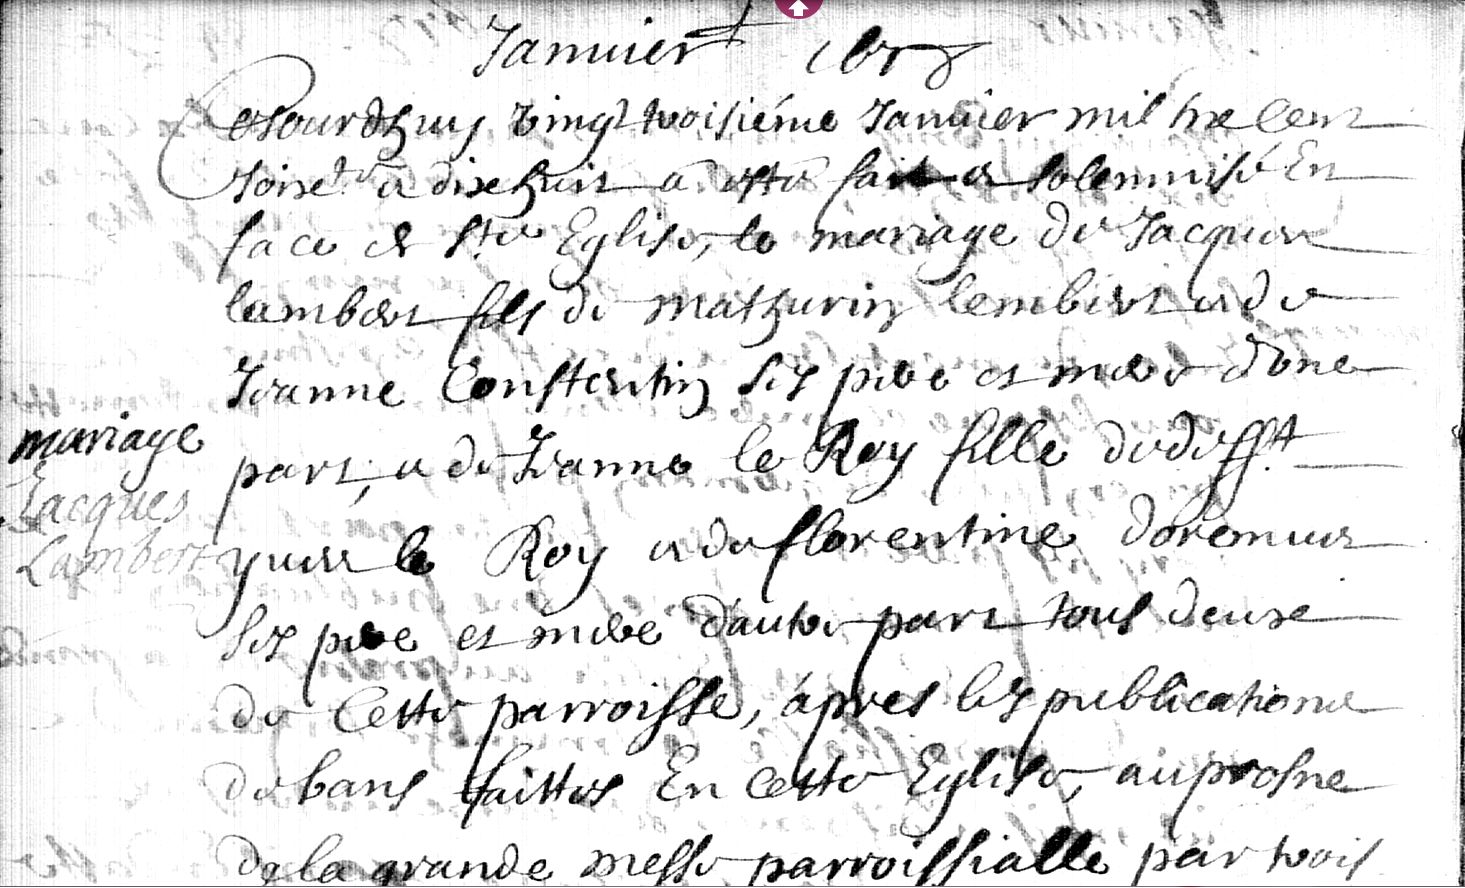 Januier 1678
Ce Jourdhuy vingt troisiéme Januier mil six cent
soixte a dixhuit a este fait et solemnisé En
face de Ste Eglise, le mariage de Jacques
lambert fils de mathurin lembert et de
Jeanne Constentin ses pere et mere dvne
part, et de Jeanne le Roy fille de defft
yues le Roy et de florentine doremus
ses pere et mere dautre part tous deux
de Cette parroisse, âpres les publications
de bans faittes En Cette Eglise, au prosne
de la grande messe parroissialle par trois
mariage
Jacques
Lambert